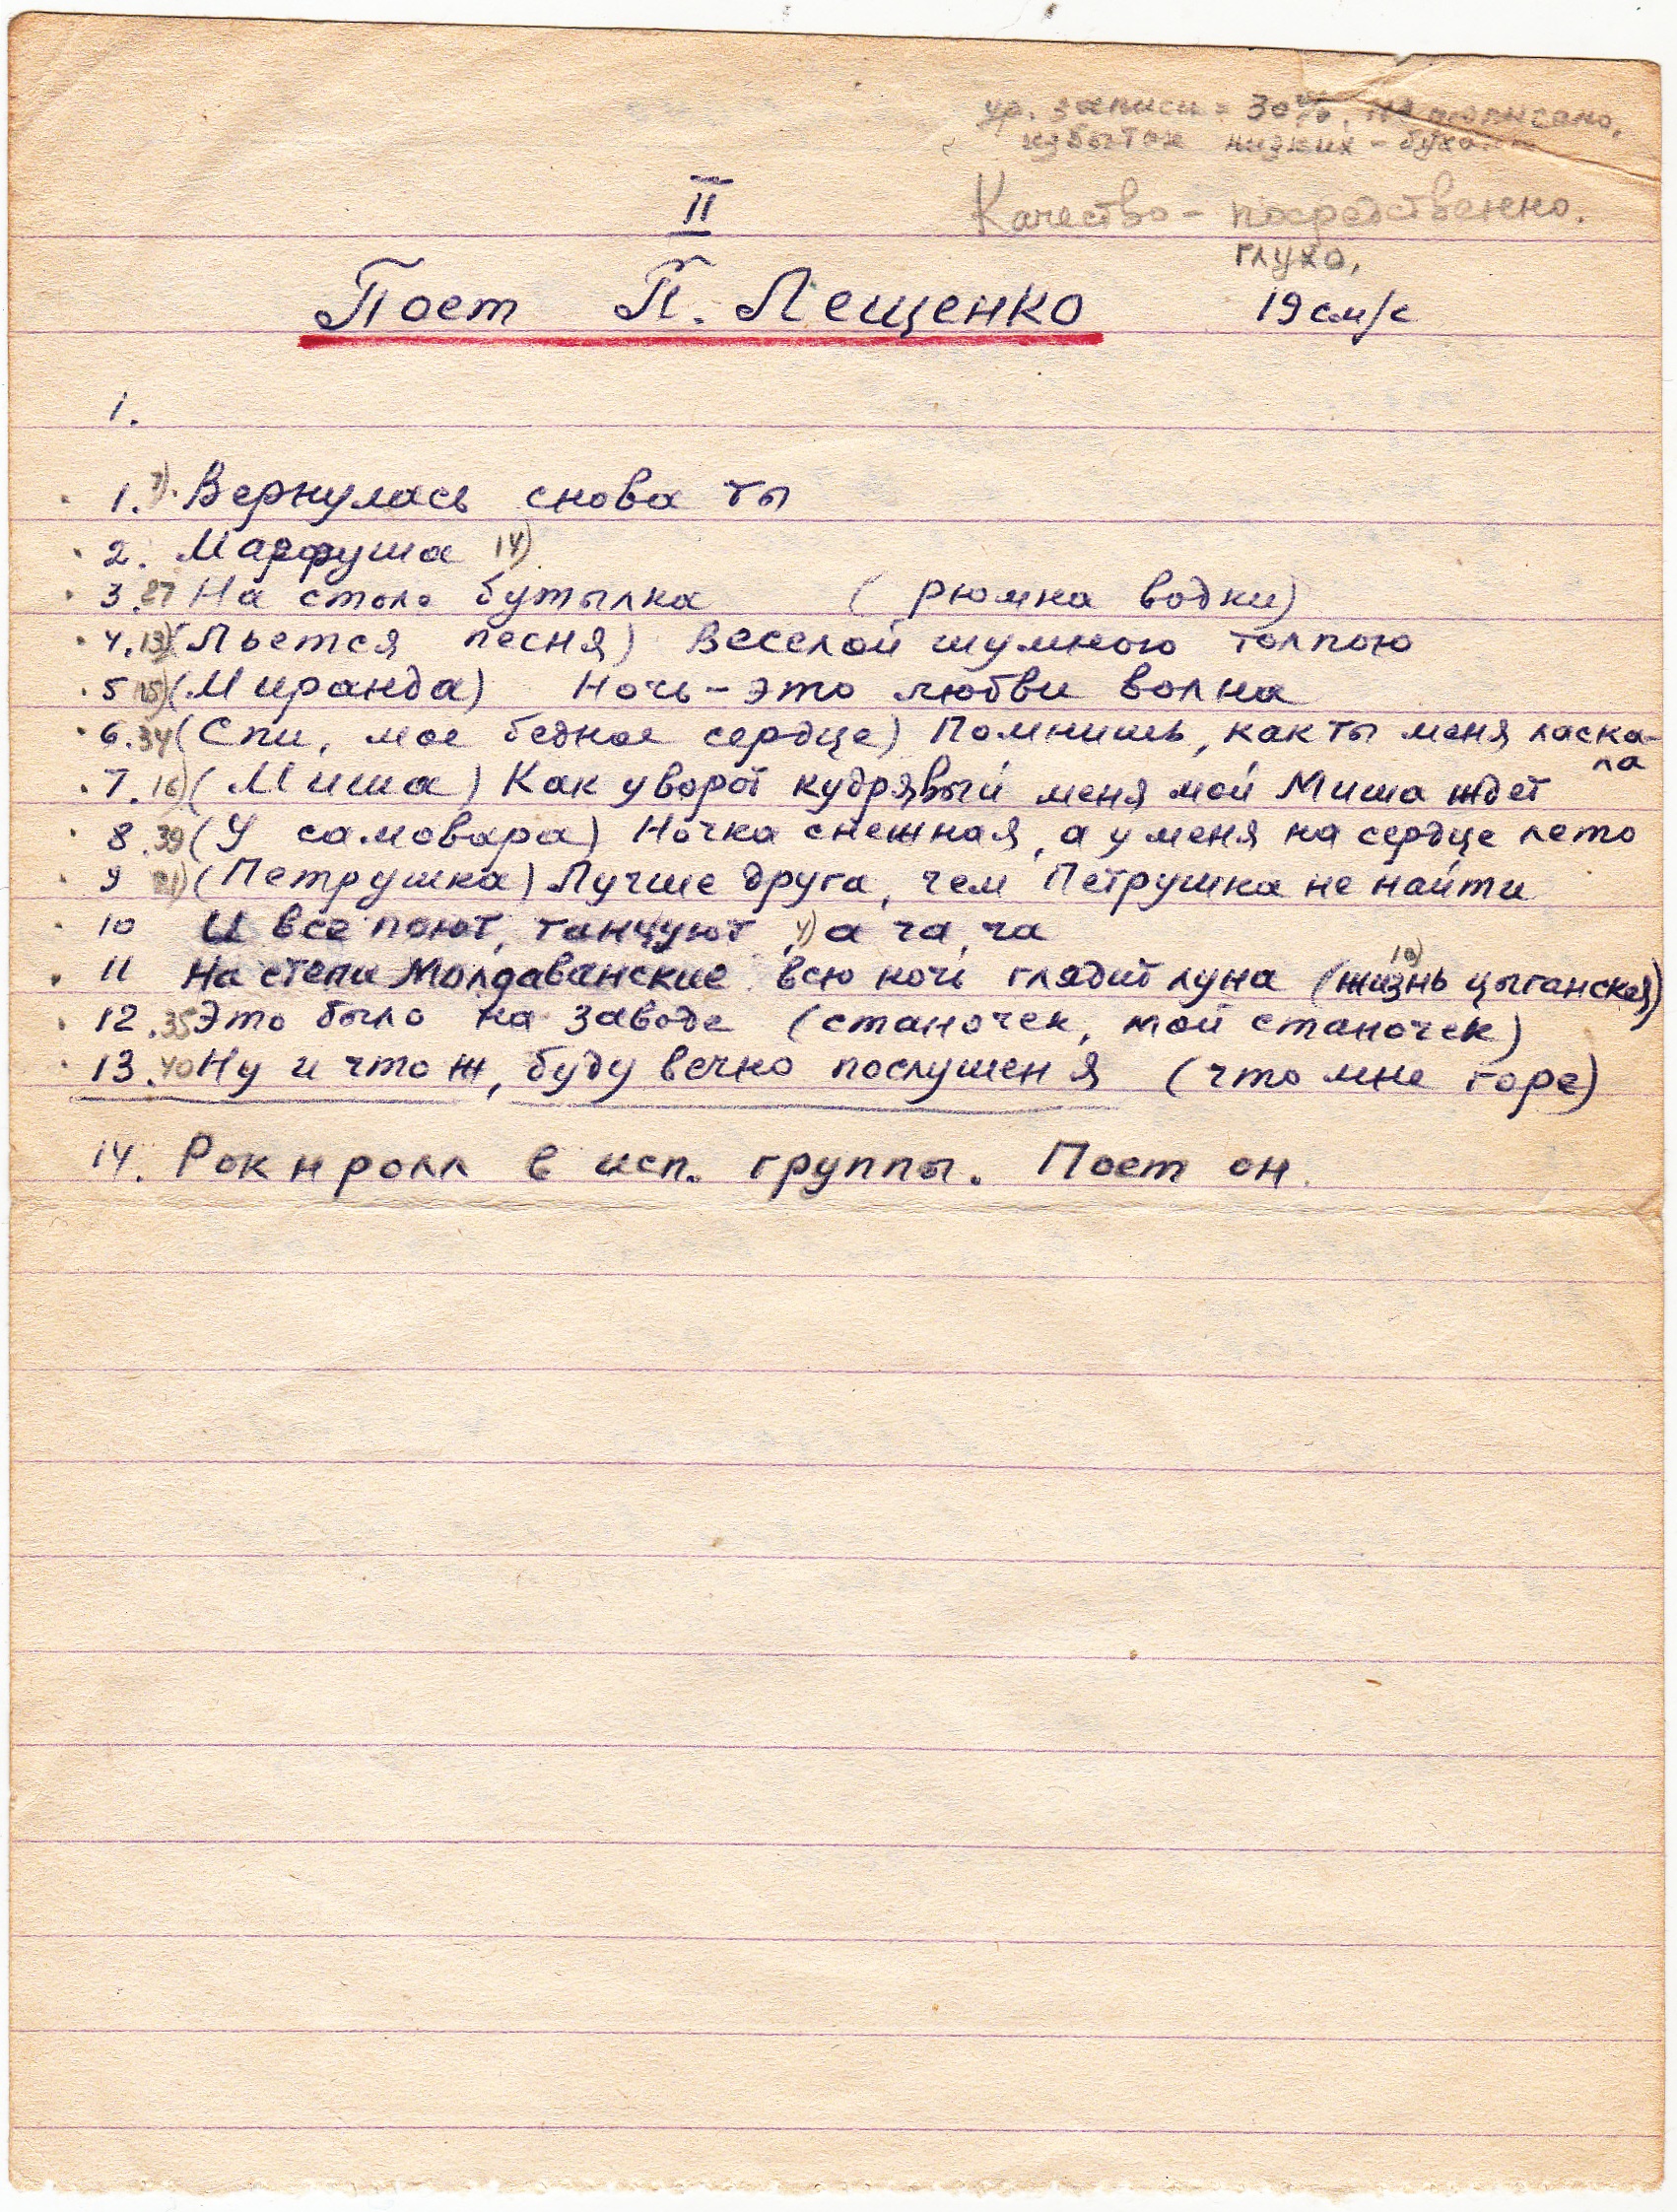 ур. записи = 30%. не дописано,
избыток низких - бухает
II
Качество - посредственно.
глухо.
Поет П. Лещенко 19 см/с
1.
1. 7). Вернулась снова ты
2. Марфуша 14)
3. 27 На столе бутылка ( рюмка водки)
4. 13) (Льется песня) Веселой шумною толпою
5 15) (Миранда) Ночь - это любви волна
6. 34 (Спи, мое бедное сердце) Помнишь, как ты меня ласка-
ла
7. 16) (Миша) Как у ворот кудрявый меня мой Миша ждет
8. 39 (У самовара) Ночка снежная, а у меня на сердце лето
9 21) (Петрушка) Лучше друга, чем Петрушка не найти
10 И все поют, танцуют, 4) а ча, ча
10)
11 На степи Молдаванские всю ночь глядит луна (жизнь цыганская)
12. 35 Это было на заводе (станочек, мой станочек)
13. 40 Ну и что ж, буду вечно послушен я (что мне горе)
14. Рок н ролл в исп. группы. Поет он.